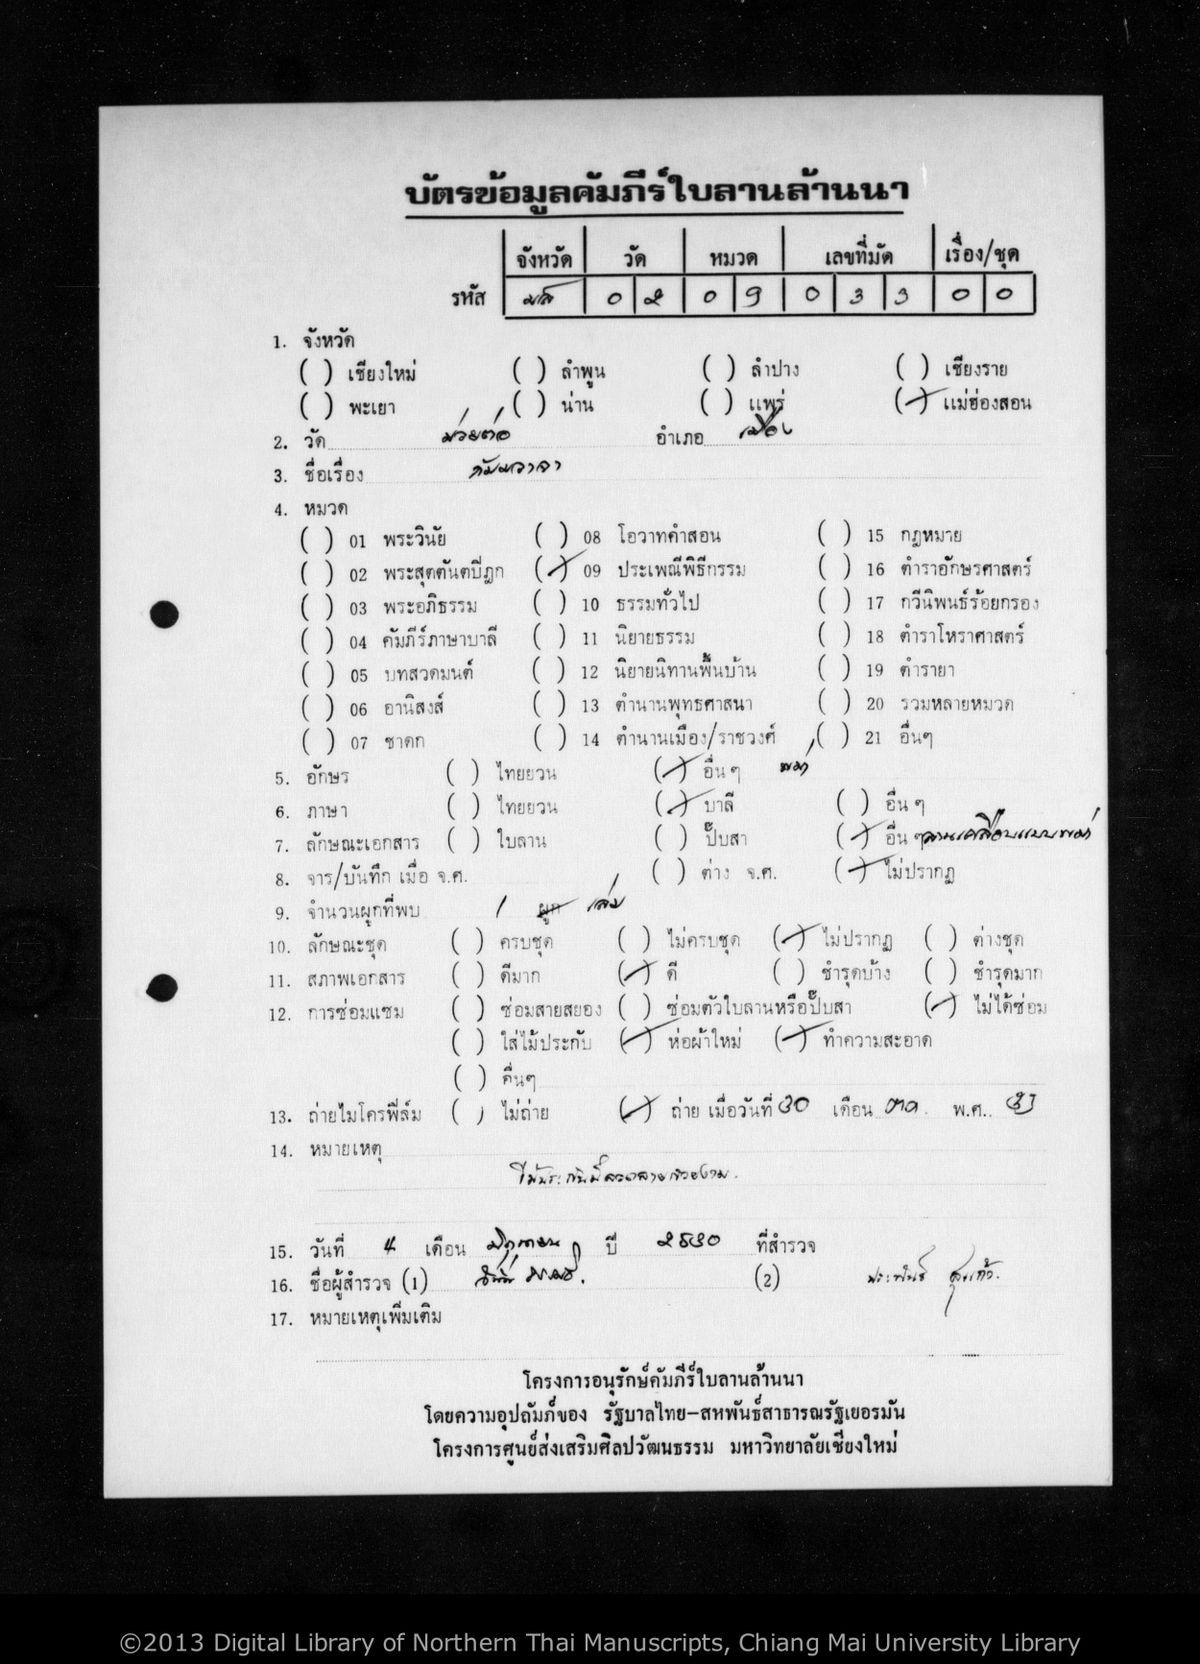 บัตรข้อมูลคัมภีร์ใบลานล้านนา
จังหวัด วัด หมวด เลขที่มัด เรื่อง/ชุด
รหัส มส 0 2 0 9 0 3 3 0 0
1. จังหวัด
( ) เชียงใหม่ ( ) ลำพูน ( ) ลำปาง ( ) เชียงราย
( ) พะเยา ( ) น่าน ( ) แพร่ (/) แม่ฮ่องสอน
2. วัด ม่วยต่อ อำเภอ เมือง
3. ชื่อเรื่อง กัมมวาจา
4. หมวด
( ) 01 พระวินัย ( ) 08 โอวาทคำสอน ( ) 15 กฎหมาย
( ) 02 พระสุตตันตปิฎก (/) 09 ประเพณีพิธีกรรม ( ) 16 ตำราอักษรศาสตร์
( ) 03 พระอภิธรรม ( ) 10 ธรรมทั่วไป ( ) 17 กวีนิพนธ์ร้อยกรอง
( ) 04 คัมภีร์ภาษาบาลี ( ) 11 นิยายธรรม ( ) 18 ตำราโหราศาสตร์
( ) 05 บทสวดมนต์ ( ) 12 นิยายนิทานพื้นบ้าน ( ) 19 ตำรายา
( ) 06 อานิสงส์ ( ) 13 ตำนานพุทธศาสนา ( ) 20 รวมหลายหมวด
( ) 07 ชาดก ( ) 14 ตำนานเมือง/ราชวงศ์ ( ) 21 อื่นๆ
5. อักษร ( ) ไทยยวน (/) อื่นๆ พม่า
6. ภาษา ( ) ไทยยวน (/) บาลี ( ) อื่นๆ
7. ลักษณะเอกสาร ( ) ใบลาน ( ) ปั๊บสา (/) อื่นๆ ลานเคลือบแบบพม่า
8. จาร/บันทึก เมื่อ จ.ศ. ( ) ต่าง จ.ศ. (/) ไม่ปรากฏ
9. จำนวนผูกที่พบ 1 ผูก เล่ม
10. ลักษณะชุด ( ) ครบชุด ( ) ไม่ครบชุด (/) ไม่ปรากฏ ( ) ต่างชุด
11. สภาพเอกสาร ( ) ดีมาก (/) ดี ( ) ชำรุดบ้าง ( ) ชำรุดมาก
12. การซ่อมแซม ( ) ซ่อมสายสยอง ( ) ซ่อมตัวใบลานหรือปั๊บสา (/) ไม่ได้ซ่อม
( ) ใส่ไม้ประกับ (/) ห่อผ้าใหม่ (/) ทำความสะอาด
( ) อื่นๆ
13. ถ่ายไมโครฟิล์ม ( ) ไม่ถ่าย (/) ถ่าย เมื่อวันที่ 30 เดือน ตค. พ.ศ. 33
14. หมายเหตุ
ไม้ประกับมีลวดลายสวยงาม.
15. วันที่ 4 เดือน มิถุนายน ปี 2530 ที่สำรวจ
16. ชื่อผู้สำรวจ (1) (2) ประพันธ์
17. หมายเหตุเพิ่มเติม
โครงการอนุรักษ์คัมภีร์ใบลานล้านนา
โดยความอุปถัมภ์ของ รัฐบาลไทย-สหพันธ์สาธารณรัฐเยอรมัน
โครงการศูนย์ส่งเสริมศิลปวัฒนธรรม มหาวิทยาลัยเชียงใหม่
©2013 Digital Library of Northern Thai Manuscripts, Chiang Mai University Library